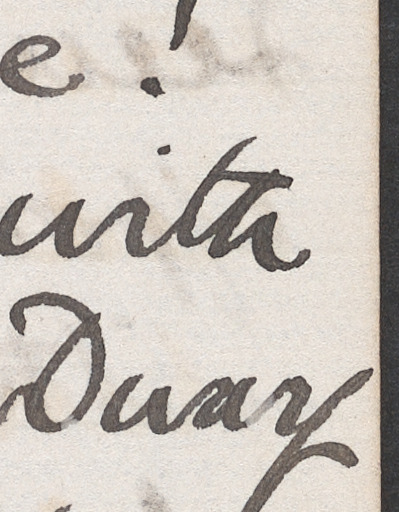 e!
with
Duay